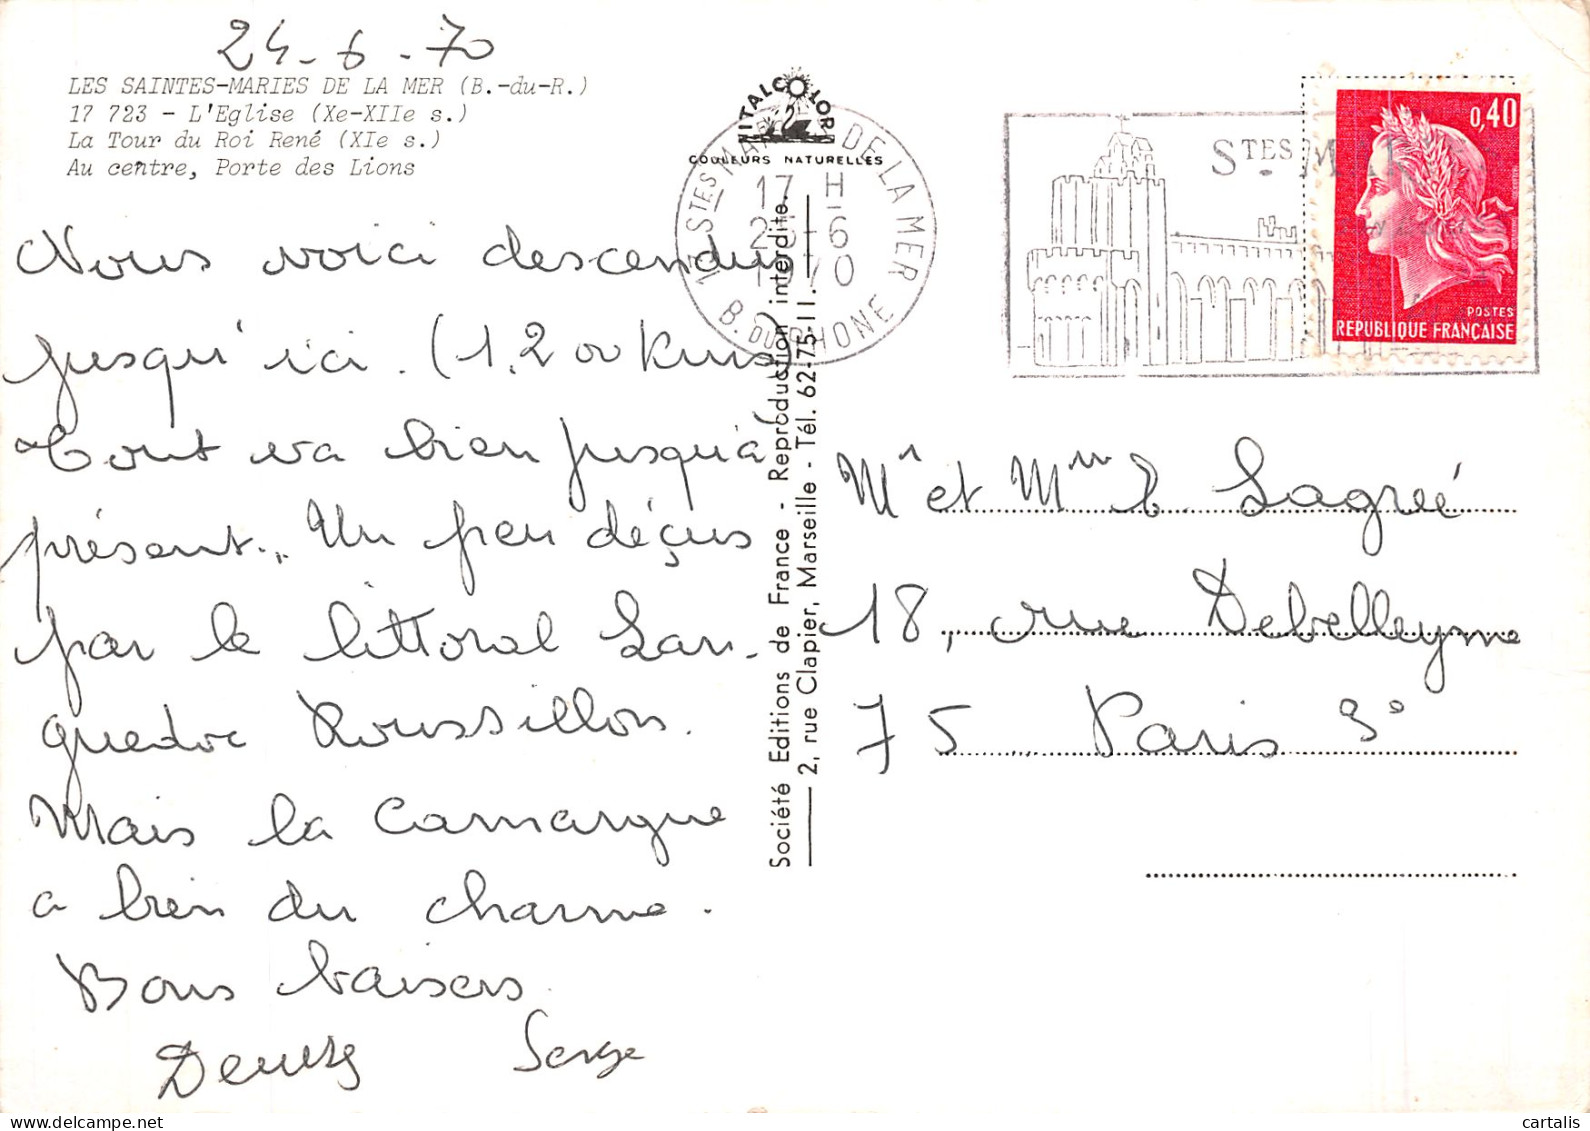 24-6-70
LES SAINTES-MARIES DE LA MER (B.-du-R.)
17 723 - L'Eglise (Xe-XIIe s.)
La Tour du Roi René (XIe s.)
Au centre, Porte des Lions
Nous voici descendus
jusqu'ici. (1.200 kms)
Tout va bien jusqu'à
présent... Un peu déçus
par le littoral Lan-
guedoc Roussillon.
Mais la Camargue
a bien du charme.
Bons baisers
Serge
VITALCOLOR
COULEURS NATURELLES
13 STES MARIES DE LA MER
17 H
6
1970
B. DU RHONE
Société Editions de France - Reproduction interdite.
2, rue Clapier, Marseille - Tél. 62-75-11.
STES MAR
0,40
POSTES
REPUBLIQUE FRANÇAISE
Mr et Mme Lagreé
18, rue Debelleyme
75 Paris 3°
cartalis